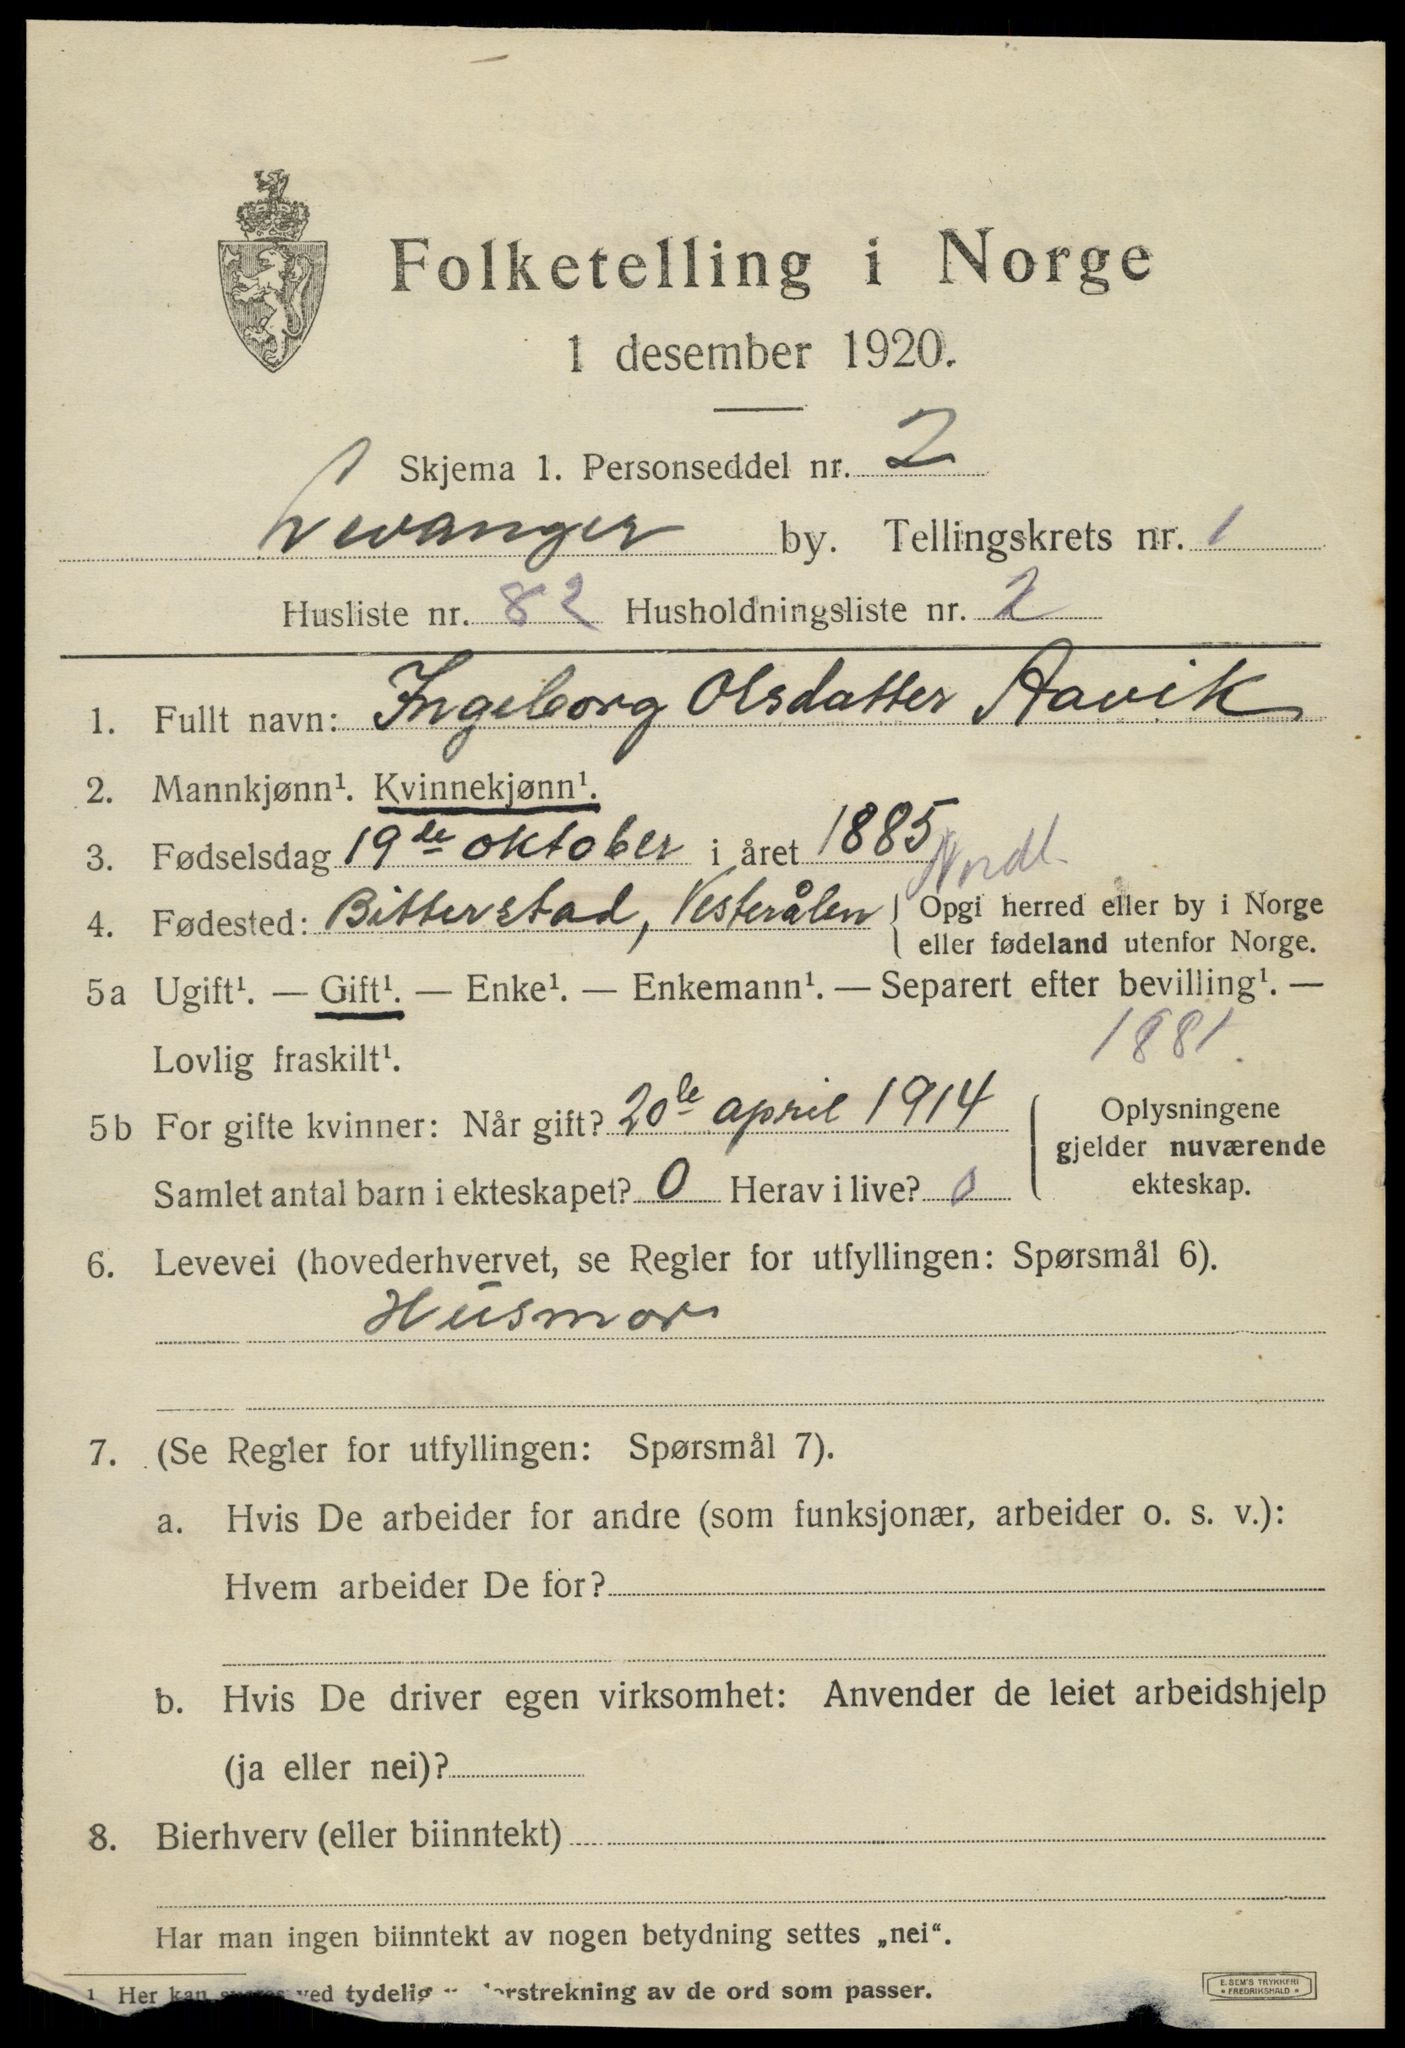 Folketelling i Norge
1 desember 1920.
Skjema 1. Personseddel nr. 2
Levanger by. Tellingskrets nr. 1
Husliste nr. 82 Husholdningsliste nr. 2
1. Fullt navn: Ingeborg Olsdatter Aavik
2. Mannkjønn¹. Kvinnekjønn¹.
3. Fødselsdag 19de oktober i året 1885
Nordl.
4. Fødested: Bitterstad, Vesterålen { Opgi herred eller by i Norge
eller fødeland utenfor Norge.
5a Ugift¹. — Gift¹. — Enke¹. — Enkemann¹. — Separert efter bevilling¹. —
Lovlig fraskilt¹.
1881.
5b For gifte kvinner: Når gift? 20de april 1914
Samlet antal barn i ekteskapet? 0 Herav i live? 0
Oplysningene
gjelder nuværende
ekteskap.
6. Levevei (hovederhvervet, se Regler for utfyllingen: Spørsmål 6).
Husmor
7. (Se Regler for utfyllingen: Spørsmål 7).
a. Hvis De arbeider for andre (som funksjonær, arbeider o. s. v.):
Hvem arbeider De for?
b. Hvis De driver egen virksomhet: Anvender de leiet arbeidshjelp
(ja eller nei)?
8. Bierhverv (eller biinntekt)
Har man ingen biinntekt av nogen betydning settes „nei“.
¹ Her kan ved tydelig understrekning av de ord som passer.
E. SEM'S TRYKKERI
• FREDRIKSHALD •